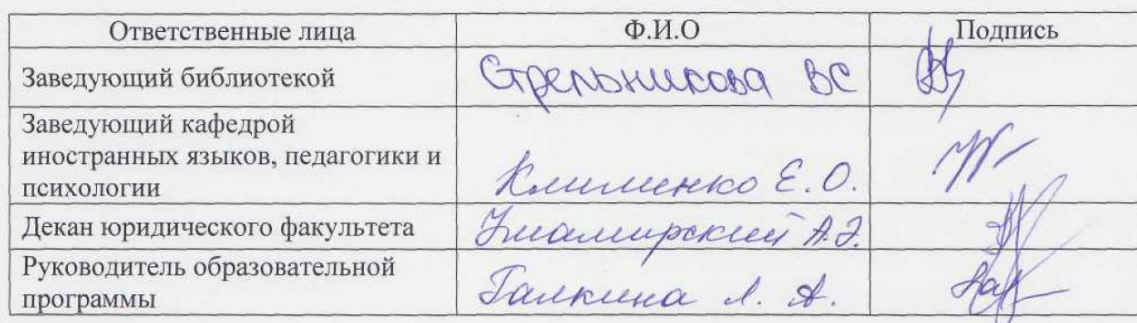 Ответственные лица Ф.И.О Подпись
Заведующий библиотекой Стрельникова ВС
Заведующий кафедрой
иностранных языков, педагогики и
психологии Клименко Е.О.
Декан юридического факультета А.Э.
Руководитель образовательной
программы Галкина Л. А.